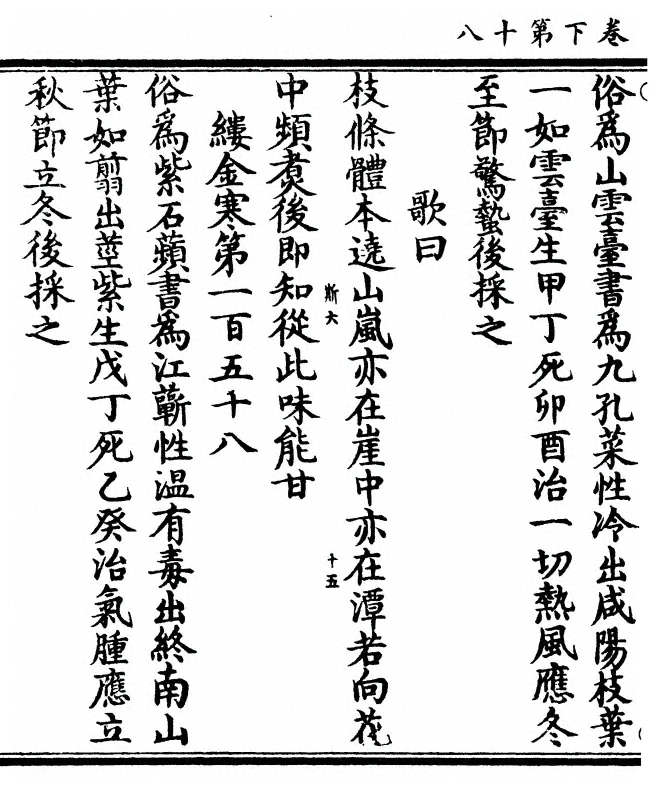 卷下第十八
俗爲山雲臺書爲九孔菜性冷出咸陽枝葉
一如雲臺生甲丁死卯酉治一切熱風應冬
至節驚蟄後採之
歌曰
枝條體本遶山嵐亦在崖中亦在潭若向花
斯大
十五
中頻煑後即知從此味能甘
縷金寒第一百五十八
俗爲紫石蘋書爲江蘄性温有毒出終南山
葉如翦出莖紫生戊丁死乙癸治氣腫應立
秋節立冬後採之